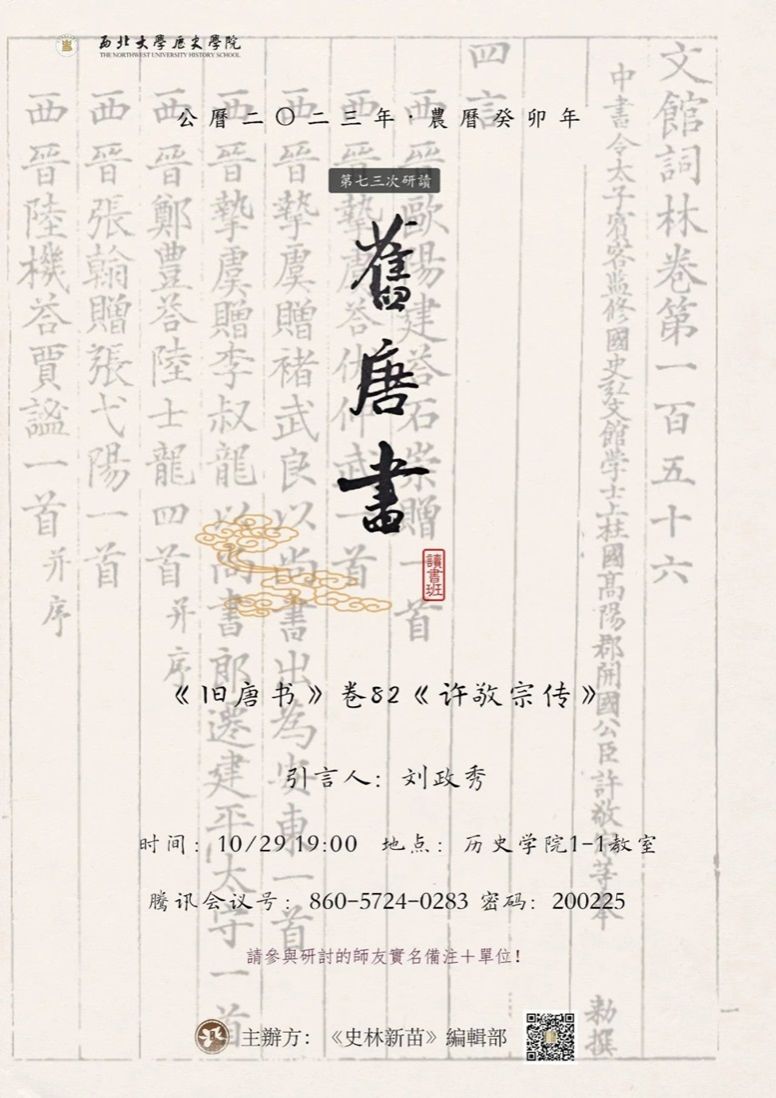 西北大學歷史學院
THE NORTHWEST UNIVERSITY HISTORY SCHOOL
公曆二〇二三年·農曆癸卯年
第七三次研讀
舊唐書
讀書班
《旧唐书》卷82《许敬宗传》
引言人：刘政秀
时间：10/29 19:00 地点：历史学院1-1教室
腾讯会议号：860-5724-0283 密码：200225
請參與研討的師友實名備注＋單位！
主辦方：《史林新苗》編輯部
文館詞林卷第一百五十六
中書令太子賓客監修國史弘文館學士上柱國高陽郡開國公臣許敬
勑撰
四言
西晉歐陽建荅石崇贈一首
西晉摯虞荅伏仲武一首
西晉摯虞贈褚武良以尚書出為安東一首
西晉摯虞贈李叔龍以尚書郎遷建平太守一首
西晉鄭豐荅陸士龍四首并序
西晉張翰贈張弋陽一首
西晉陸機荅賈謐一首并序